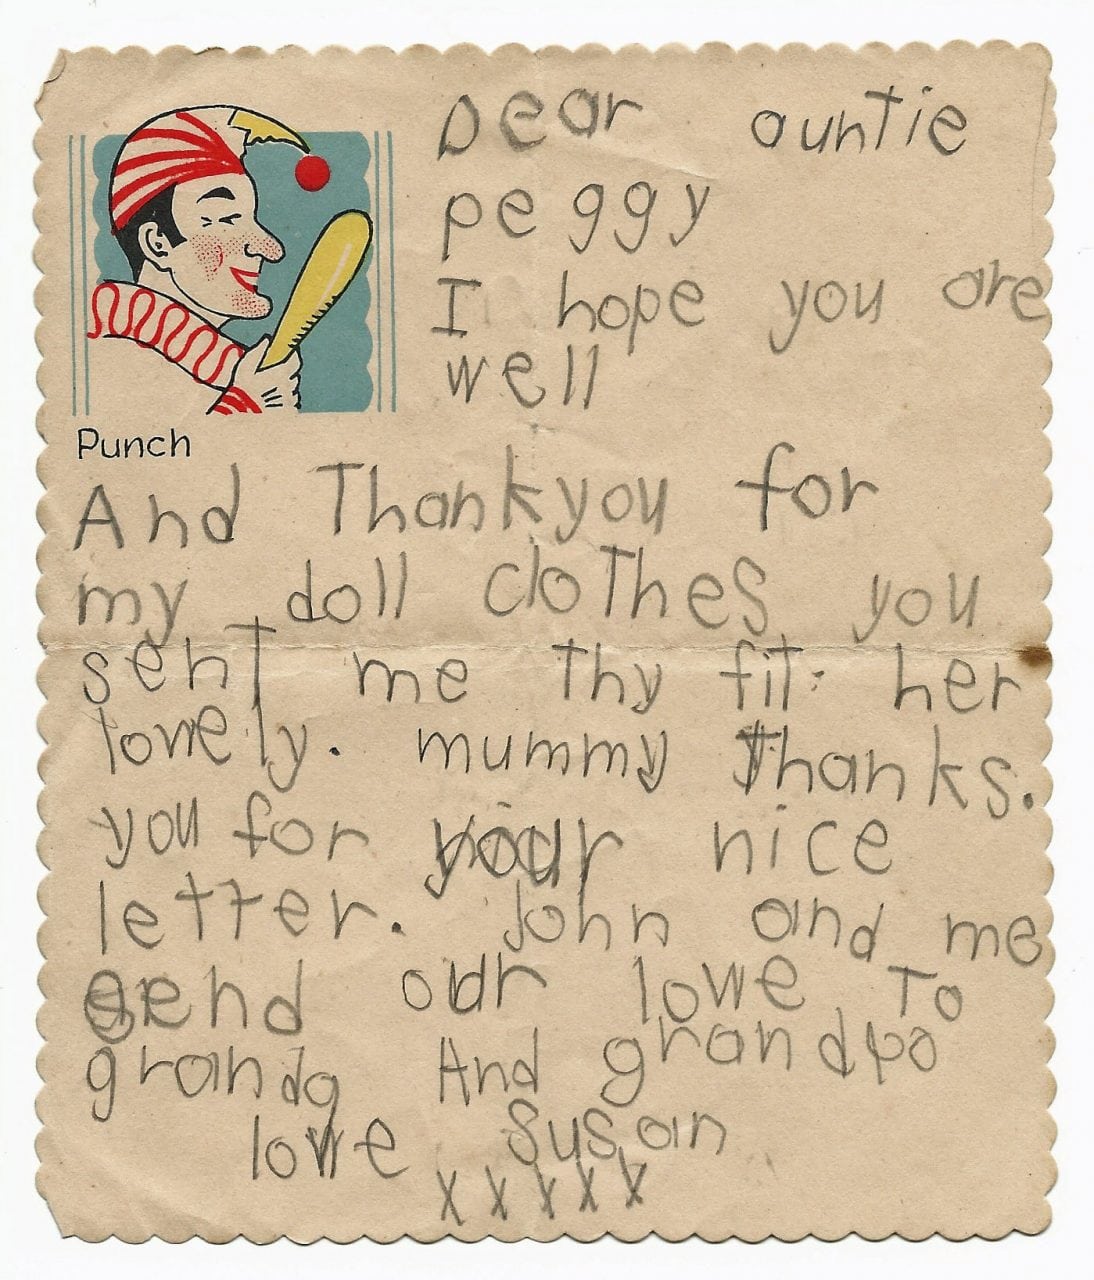 Dear auntie
peggy
I hope you are
well
Punch
And Thankyou for
my doll clothes you
sent me thy fit her
lovely. mummy thanks.
you for your nice
letter. John and me
send our love To
granda And grandpa
love Susan
x x x x x